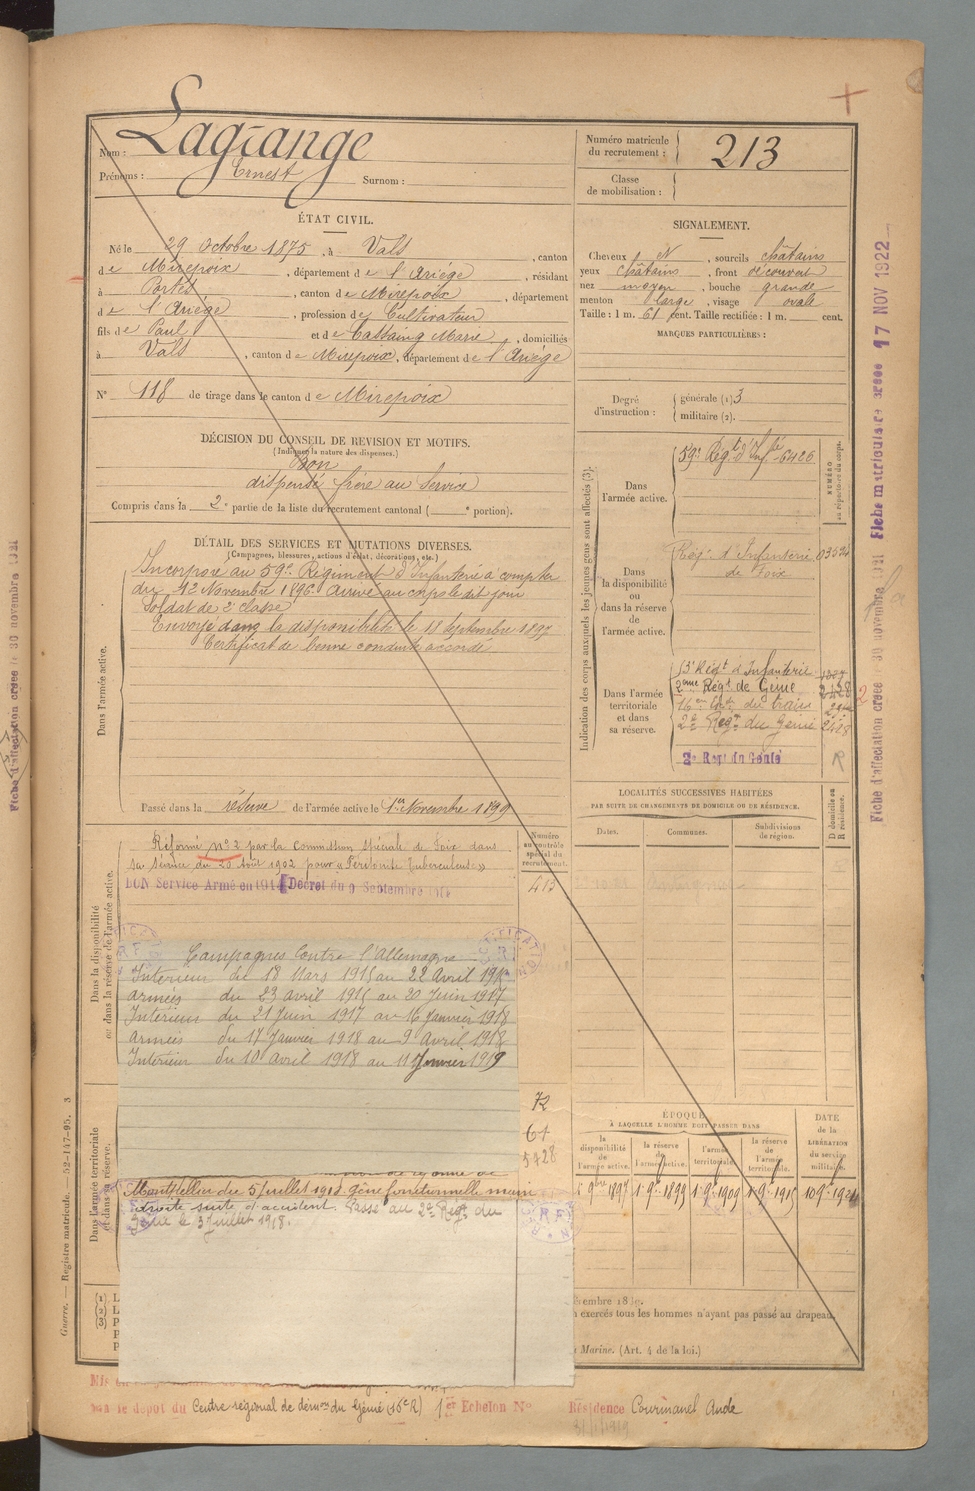 Nom : Lagrange
Prénoms : Ernest Surnom :
Numéro matricule
du recrutement : 213
Classe
de mobilisation :
ÉTAT CIVIL.
Né le 29 Octobre 1875, à Vals, canton
de Mirepoix, département de l'Ariége, résidant
à Portes, canton de Mirepoix, département
de l'Ariége, profession de Cultivateur
fils de Paul et de Cassaing Marie, domiciliés
à Vals, canton de Mirepoix, département de l'Ariége
N° 118 de tirage dans le canton de Mirepoix
SIGNALEMENT.
Cheveux et, sourcils châtains
yeux châtains, front découvert
nez moyen, bouche grande
menton large, visage ovale
Taille : 1 m. 61 cent. Taille rectifiée : 1 m. cent.
MARQUES PARTICULIÈRES :
Degré
d'instruction :
générale (1) 3
militaire (2).
DÉCISION DU CONSEIL DE REVISION ET MOTIFS.
(Indiquer la nature des dispenses.)
Bon
dispensé frère au Service
Compris dans la 2e partie de la liste du recrutement cantonal ( e portion).
DÉTAIL DES SERVICES ET MUTATIONS DIVERSES.
(Campagnes, blessures, actions d'éclat, décorations, etc.)
Dans l'armée active.
Incorporé au 59e Régiment d'Infanterie à compter
du 12 Novembre 1896. Arrivé au corps le dit jour
Soldat de 2e classe
Envoyé dans la disponibilité le 18 Septembre 1897
Certificat de bonne conduite accordé
Passé dans la réserve de l'armée active le 1er Novembre 1899
Indication des corps auxquels les jeunes gens sont affectés (3).
NUMÉRO
au répertoire du corps.
Dans
l'armée active.
59e Régt d'Infie 6426
Dans
la disponibilité
ou
dans la réserve
de
l'armée active.
Régt d'Infanterie
de Foix
Dans l'armée
territoriale
et dans
sa réserve.
Régt d'Infanterie
2eme Régt de Génie
16e du train
2e Régt du Génie
2e Regt du Génie
R
LOCALITÉS SUCCESSIVES HABITÉES
PAR SUITE DE CHANGEMENTS DE DOMICILE OU DE RÉSIDENCE.
Dates.
Communes.
Subdivisions
de région.
D domicile ou
R résidence.
Dans la disponibilité
ou dans la réserve de l'armée active.
Numéro
au contrôle
spécial du
recrutement.
413
Réformé n°2 par la Commission spéciale de Foix dans
sa séance du 20 Août 1902 pour « Péritonite Tuberculeuse »
BON Service Armé en 1914 Décret du 9 Septembre 1914
Campagnes Contre l'Allemagne
Intérieur du 18 Mars 1915 au 22 Avril 1915
Armées du 23 avril 1915 au 20 Juin 1917
Intérieur du 21 Juin 1917 au 16 Janvier 1918
Armées du 17 Janvier 1918 au 9 Avril 1918
Intérieur du 10 avril 1918 au 11 Janvier 1919
72
61
5728
Dans l'armée territoriale
et dans sa réserve.
Montpellier du 5 Juillet 1918. gêne fonctionnelle main
droite suite d'accident. Passé au 2e Régt du
Génie le 3 Juillet 1918.
ÉPOQUE
À LAQUELLE L'HOMME DOIT PASSER DANS
la
disponibilité
de
l'armée active.
la réserve
de
l'armée active.
l'armée
territoriale.
la réserve
de
l'armée
territoriale.
DATE
de la
LIBÉRATION
du service
militaire.
1 9bre 1897
1 9e 1899
1 9e 1909
1 9e 1915
10 9e 1921
exercés tous les hommes n'ayant pas passé au drapeau.
Marine. (Art. 4 de la loi.)
le dépot du Centre régional de démon du Génie (16e R) 1er Echelon N° Résidence Cournanel Aude
31/1/1919
Guerre. — Registre matricule. — 52-147-95. 3
Fiche d'affectation créée le 30 novembre 1921
Fiche d'affectation créée 30 novembre 1921 Fiche matriculaire créée 17 NOV 1922